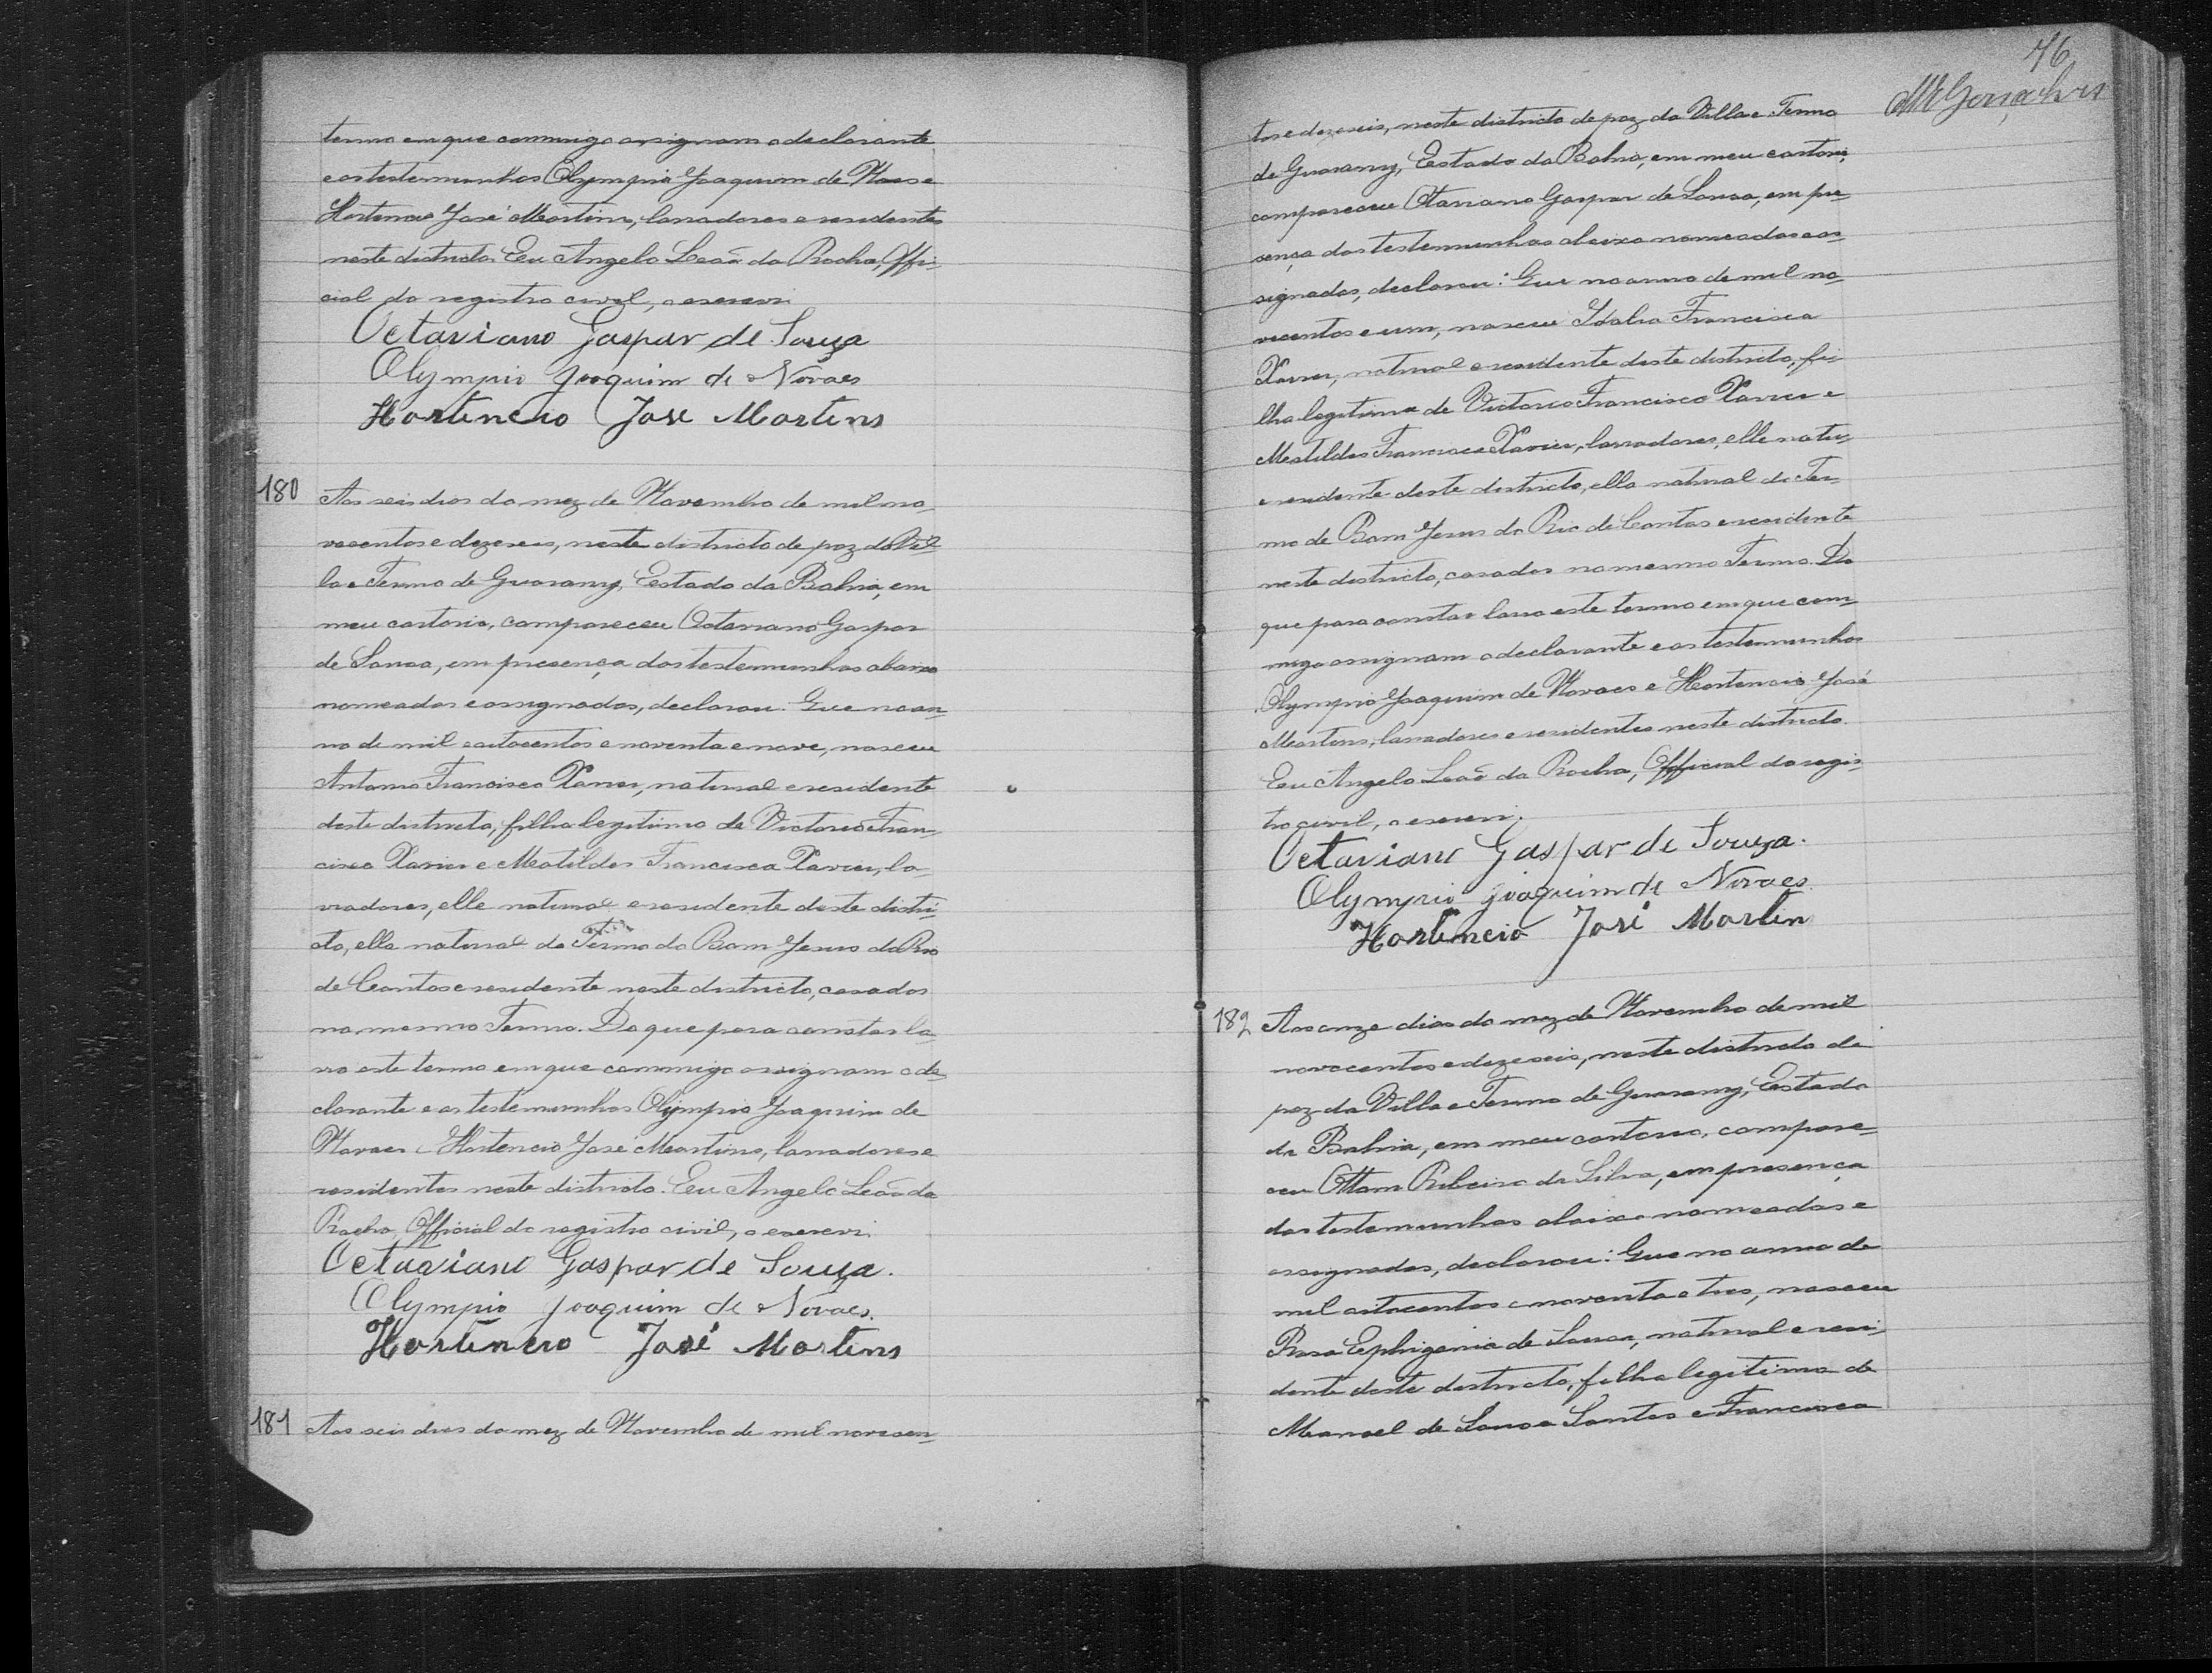 termo em que commigo assignam o declarante
e as testemunhas Olympio Joaquim de Novaes e
Hortencio José Martins, lavradores e residentes
neste districto. Eu Angelo Leão da Rocha, Offi-
cial do registro civil, o escrevi.
Octaviano Gaspar de Souza
Olympio Joaquim de Novaes
Hortencio José Martins
180
Aos seis dias do mez de Novembro de mil no-
vecentos e dezeseis, neste districto de paz da Vil-
la e Termo de Guarany, Estado da Bahia, em
meu cartorio, compareceu Octaviano Gaspar
de Sousa, em presença das testemunhas abaixo
nomeadas e assignadas, declarou: Que no an-
no de mil oitocentos e noventa e nove, nasceu
Antonio Francisco Xavier, natural e residente
deste districto, filho legitimo de Victorio Fran-
cisco Xavier e Matildes Francisca Xavier, la-
vradores, elle natural e residente deste distri-
cto, ella natural do Termo do Bom Jesus do Rio
de Contas e residente neste districto, casados
no mesmo Termo. Do que para constar la-
vro este termo em que commigo assignam o de-
clarante e as testemunhas Olympio Joaquim de
Novaes e Hortencio José Martins, lavradores e
residentes neste districto. Eu Angelo Leão da
Rocha, Official do registro civil, o escrevi.
Octaviano Gaspar de Souza.
Olympio Joaquim de Novaes.
Hortencio José Martins
181
Aos seis dias do mez de Novembro de mil novecen-
76
MEGonçalves
tos e dezeseis, neste districto de paz da Villa e Termo
de Guarany, Estado da Bahia, em meu cartorio,
compareceu Otaviano Gaspar de Sousa, em pre-
sença das testemunhas abaixo nomeadas e as-
signadas, declarou: Que no anno de mil no-
vecentos e um, nasceu Idalia Francisca
Xavier, natural e residente deste districto, fi-
lha legitima de Victorio Francisco Xavier e
Matildes Francisca Xavier, lavradores, elle natu-
e residente deste districto, ella natural do Ter-
mo de Bom Jesus do Rio de Contas e residente
neste districto, casados no mesmo Termo. Do
que para constar lavro este termo em que com-
migo assignam o declarante e as testemunhas
Olympio Joaquim de Novaes e Hortencio José
Martins, lavradores e residentes neste districto.
Eu Angelo Leão da Rocha, Official do regis-
tro civil, o escrevi.
Octaviano Gaspar de Souza.
Olympio Joaquim de Novaes.
Hortencio José Martin
182
Aos onze dias do mez de Novembro de mil
novecentos e dezeseis, neste districto de
paz da Villa e Termo de Guarany, Estado
da Bahia, em meu cartorio, compare-
ceu Ottom Ribeiro da Silva, em presença
das testemunhas abaixo nomeadas e
assignadas, declarou: Que no anno de
mil oitocentos e noventa e tres, nasceu
Rosa Ephigenia de Sousa, natural e resi-
dente deste districto, filha legitima de
Manoel de Sousa Santos e Francisca